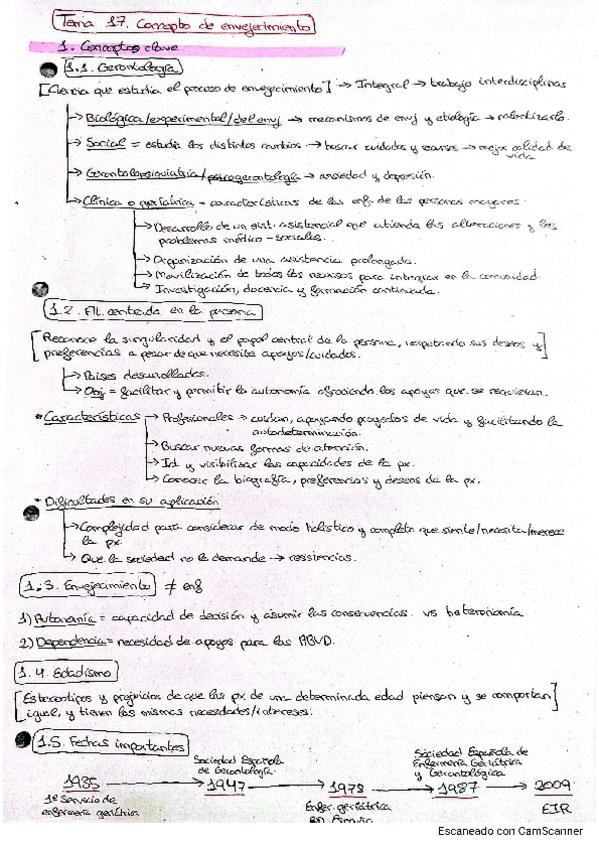 Tema 17. Concepto de envejecimiento
1. Conceptos clave
1.1. Gerontología
[Ciencia que estudia el proceso de envejecimiento] → Integral → trabajo interdisciplinar
→ Biológica/experimental/del envj → mecanismos de envj y etiología → ralentizarlo.
→ Social = estudia los distintos cambios → buscar cuidados y recursos → mejor calidad de
vida
→ Gerontopsiquiatría/psicogerontología → ansiedad y depresión.
→ Clínica o geriátrica - características de las enf. de las personas mayores.
→ Desarrollo de un sist. asistencial que atienda las alteraciones y los
problemas médico-sociales.
→ Organización de una asistencia prolongada.
→ Movilización de todos los recursos para integrar en la comunidad.
→ Investigación, docencia y formación continuada.
1.2. At. centrada en la persona
[Reconoce la singularidad y el papel central de la persona, respetando sus deseos y
preferencias a pesar de que necesite apoyos/cuidados.]
→ Países desarrollados.
→ Obj = facilitar y permitir la autonomía ofreciendo los apoyos que se requieran.
* Características → Profesionales → cuidan, apoyando proyectos de vida y facilitando la
autodeterminación.
→ Buscar nuevas formas de atención.
→ Id. y visibilizar las capacidades de la px.
→ Conocer la biografía, preferencias y deseos de la px.
* Dificultades en su aplicación
→ Complejidad para considerar de modo holístico y completo que siente/necesita/merece
la px.
→ Que la sociedad no la demande → resistencias.
1.3. Envejecimiento ≠ enf
1) Autonomía = capacidad de decisión y asumir las consecuencias. vs heteronomía
2) Dependencia = necesidad de apoyos para las ABVD.
1.4. Edadismo
[Estereotipos y prejuicios de que las px. de una determinada edad piensan y se comportan
igual, y tienen las mismas necesidades/intereses.]
1.5. Fechas importantes
Sociedad Española
de Gerontología
Sociedad Española de
Enfermería Geriátrica
y Gerontológica
1935 → 1947 → 1978 → 1987 → 2009
1º Servicio de
enfermería geriátrica
Enfer. geriátrica
en España
EIR
Escaneado con CamScanner